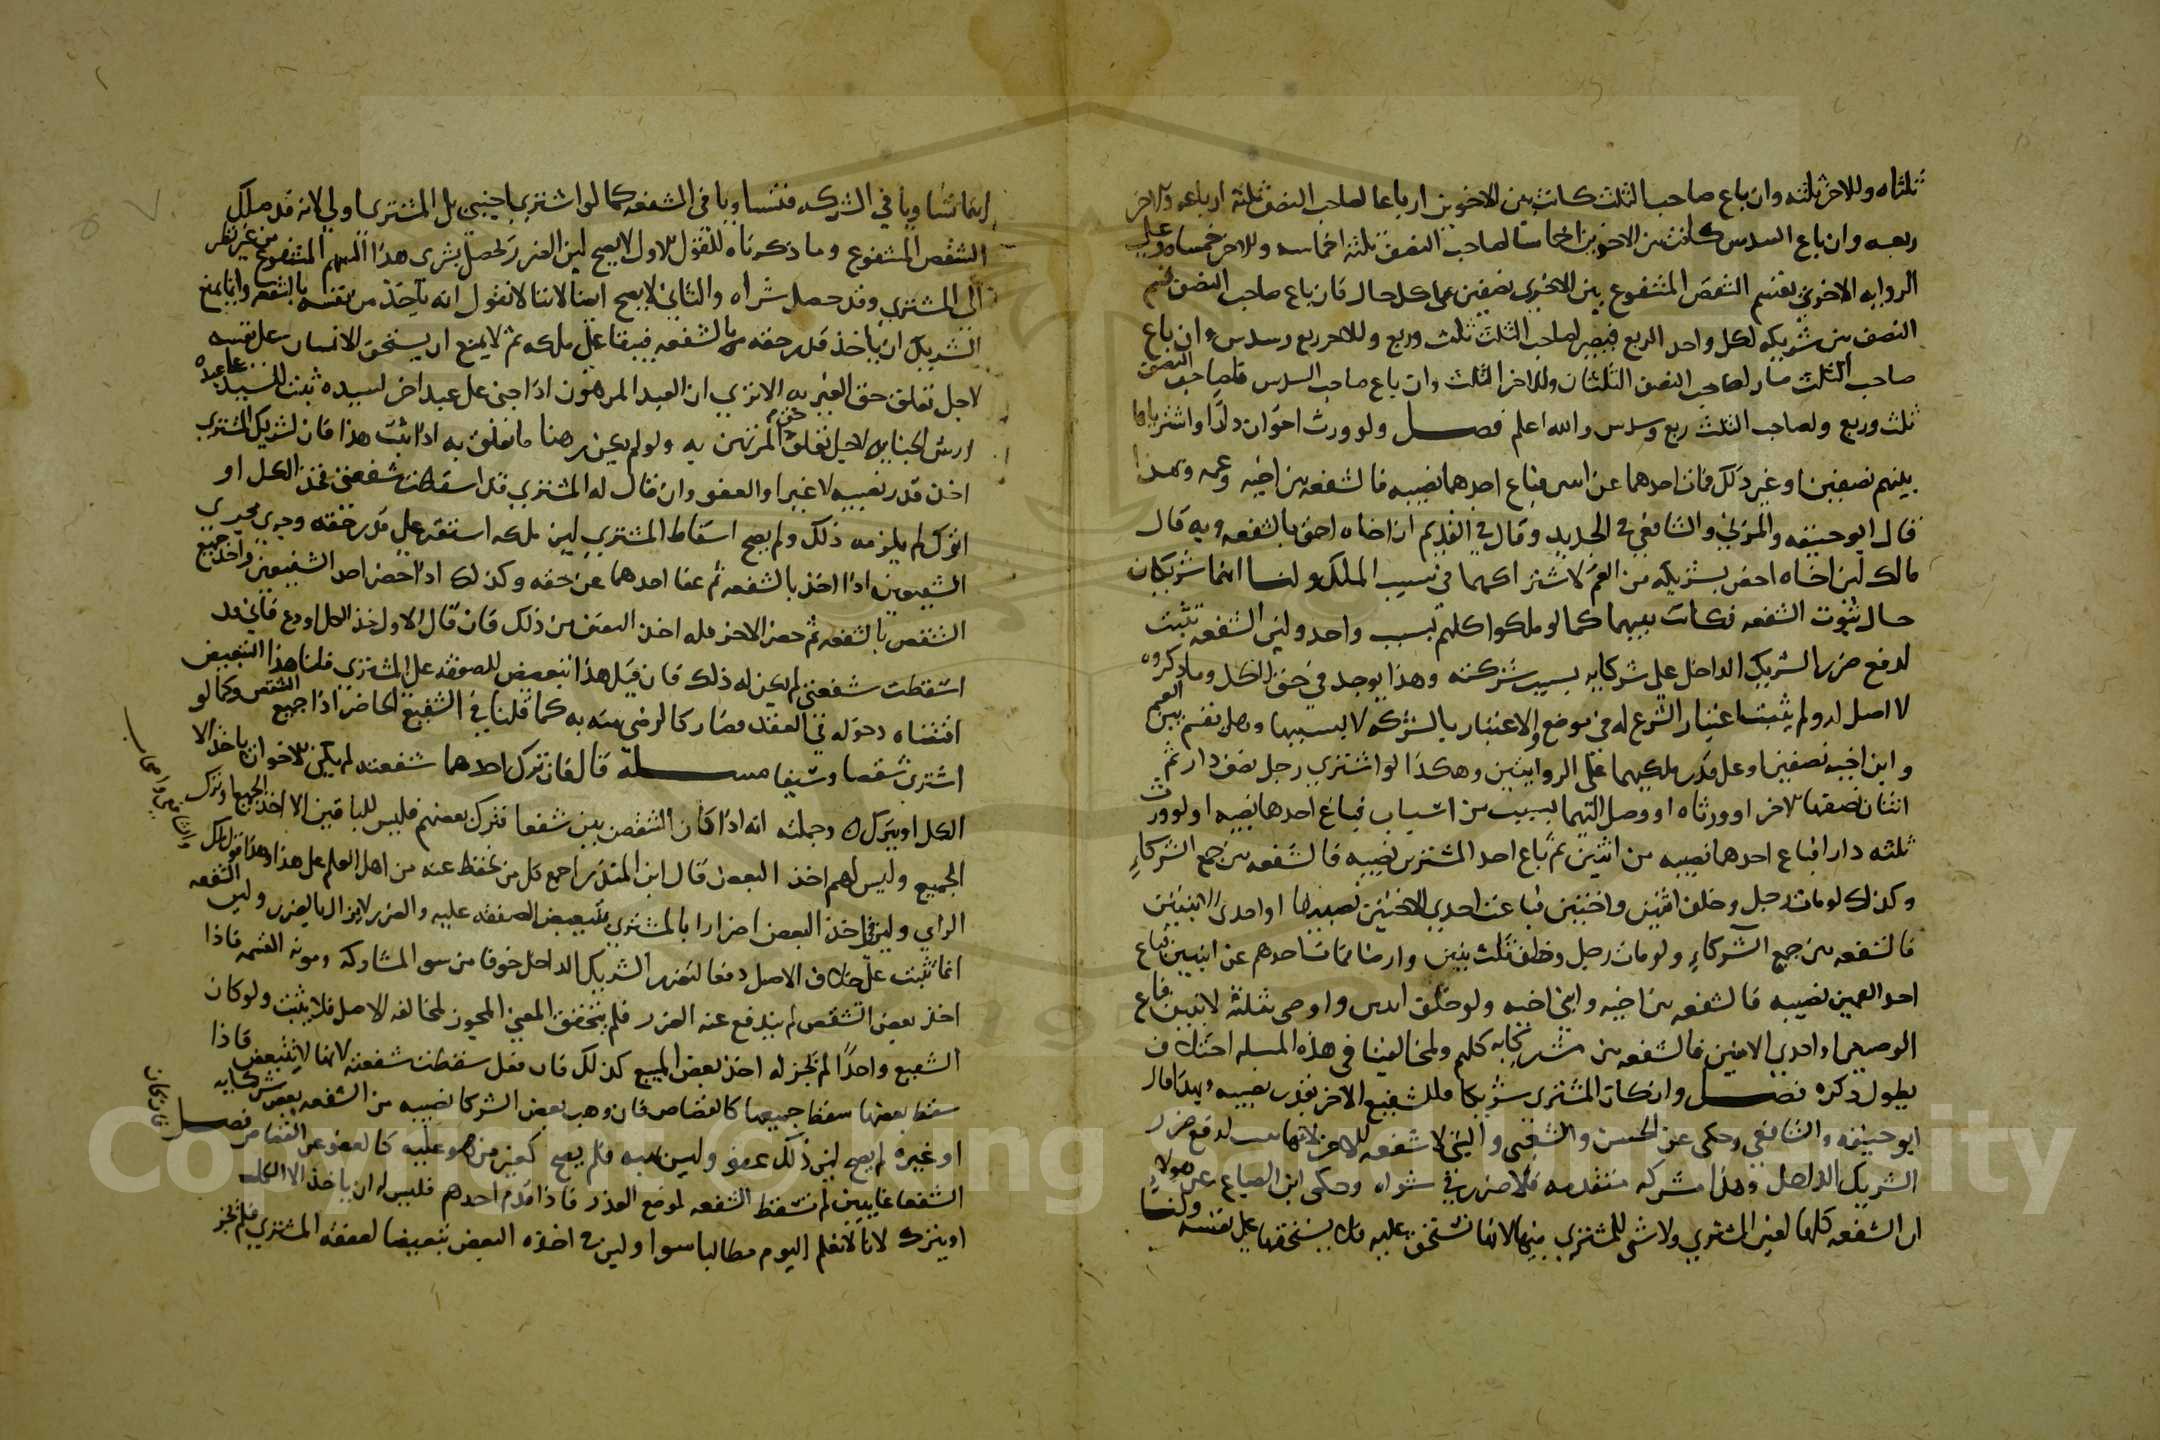 ثلثاه وللاخر ثلثه وان باع صاحب الثلث كانت بين الاخوين ارباعا لصاحب النصف ثلثة ارباعه وللاخر
ربعه وان باع السدس كانت بين الاخوين اخماسا لصاحب النصف ثلثة اخماسه وللاخر خمساه وعلى
الرواية الاخرى يقسم الشقص المشفوع بين الاخرين نصفين على كل حال فان باع صاحب النصف قسم
النصف بين شريكيه لكل واحد الربع فيصير لصاحب الثلث ثلث وربع وللاخر ربع وسدس وان باع
صاحب الثلث صار لصاحب النصف الثلثان وللاخر الثلث وان باع صاحب السدس فلصاحب النصف
ثلث وربع ولصاحب الثلث ربع وسدس والله اعلم فصل ولو ورث اخوان دارا او اشترياها
بينهم نصفين او غير ذلك فمات احدهما عن ابنين فباع احدهما نصيبه فالشفعة بين اخيه وعمه وبهذا
قال ابو حنيفه والمزني والشافعي في الجديد وقال في القديم ان اخاه احق بالشفعه وبه قال
مالك لين اخاه اخص بشركته من العم لاشتراكهما في سبب الملك ولنا انهما شريكان
حال ثبوت الشفعه فكانت بينهما كما لو ملكوا كلهم بسبب واحد ولين الشفعه تثبت
لدفع ضرر الشريك الداخل على شركايه بسبب شركته وهذا يوجد في حق الكل وما ذكروه
لا اصل له ولم يثبت اعتبار الشرع له في موضع والاعتبار بالشركه لا بسببها وهل تقسم بين العم
وابن اخيه نصفين او على قدر ملكيهما على الروايتين وهكذا لو اشترى رجل نصف دار ثم
اشترى اثنان نصفها الاخر او ورثاه او وصل اليهما بسبب من اسباب فباع احدهما نصيبه او لو ورث
ثلثه دارا فباع احدهم نصيبه من اثنين ثم باع احد المشترين نصيبه فالشفعه بين جميع الشركاء
وكذلك لو مات رجل وخلف ابنتين واختين فباعت احدى الاختين نصيبها او احدى الابنتين
فالشفعه بين جميع الشركاء ولو مات رجل وخلف ثلث بنين وارضا فمات احدهم عن ابنين فباع
احد العمين نصيبه فالشفعه بين اخيه وابني اخيه ولو خلف ابنين واوصى بثلثه لاثنين فباع
الوصيين او احدى الابنين فالشفعه بين شركايه كلهم ولمخالفينا في هذه المسله اختلاف
يطول ذكره فصل وان كان المشتري شريكا فللشفيع الاخر بقدر نصيبه وبهذا قال
ابو حنيفه والشافعي وحكى عن الحسن والشعبي والبتي لا شفعه للاخر لانها تثبت لدفع ضرر
الشريك الداخل وهذا شركته متقدمه فلا ضرر في شراه وحكى ابن الصباغ عن هولاء
ان الشفعه كلها لغير المشتري ولا شي للمشتري فيها لانها تستحق عليه فلا يستحقها على نفسه ولنا
انهما تساويا في الشركه فتساويا في الشفعه كما لو اشترى اجنبي بل المشتري اولى لانه قد ملك
الشقص المشفوع وما ذكرناه للقول الاول لا يصح لين الضرر يحصل بشرى هذا السهم المشفوع من غير نظر
الى المشتري وقد حصل شراه والثاني لا يصح ايضا لاننا لا نقول انه ياخذ من نفسه بالشفعه وانما يمنع
الشريك ان ياخذ قدر حقه بالشفعه فيبقا على ملكه ثم لا يمنع ان يستحق الانسان على نفسه
لاجل تعلق حق الغير به الا ترى ان العبد المرهون اذا جنى على عبد اخر لسيده ثبت للسيد على عبده
ارش الجنايه لاجل تعلق حق المرتهن به ولو لم يكن رهنا ما تعلق به اذا ثبت هذا فان لشريك المشتري
اخذ قدر نصيبه لا غير او العفو وان قال له المشتري قد اسقطت شفعتي فخذ الكل او
اترك لم يلزمه ذلك ولم يصح اسقاط المشتري لين ملكه استقر على قدر حقه وجرى مجرى
الشفيعين اذا اخذ بالشفعه ثم عفا احدهما عن حقه وكذلك اذا حضر احد الشفيعين واخذ جميع
الشقص بالشفعه ثم حضر الاخر فله اخذ النصف من ذلك فان قال الاول خذ الكل او دع فاني قد
اسقطت شفعتي لم يكن له ذلك فان قيل هذا تبعيض للصفقه على المشتري قلنا هذا التبعيض
اقتضاه دخوله في العقد فصار كالرضى منه به كما قلنا في الشفيع الحاضر اذا اخذ جميع الشقص وكما لو
اشترى شقصا وسيفا مسلة قال فان ترك احدهما شفعته لم يكن للاخر ان ياخذ الا
الكل او يترك وجملته انه اذا كان الشقص بين شفعا فترك بعضهم فليس للباقين الا اخذ الجميع او ترك
الجميع وليس لهم اخذ البعض قال ابن المنذر اجمع كل من نحفظ عنه من اهل العلم على هذا وهذا قول مالك
والشافعي واصحاب
الراي ولين في اخذ البعض اضرارا بالمشتري بتبعيض الصفقه عليه والضرر لا يزال بالضرر ولين الشفعه
انما تثبت على خلاف الاصل دفعا لضرر الشريك الداخل خوفا من سو المشاركه ومونه القسمه فاذا
اخذ بعض الشقص لم يندفع عنه الضرر فلم يتحقق المعنى المجوز لمخالفه الاصل فلا يثبت ولو كان
الشفيع واحدا لم يجز له اخذ بعض المبيع كذلك فان فعل سقطت شفعته لانها لا تتبعض فاذا
سقط بعضها سقط جميعها كالقصاص فان وهب بعض الشركا نصيبه من الشفعه بعض شركايه
او غيره لم يصح لين ذلك عفو وليس بهبه فلم يصح كغير من هو عليه كالعفو عن القصاص فصل
فان كان
الشفعا غايبين لم تسقط الشفعه لموضع العذر فاذا قدم احدهم فليس له ان ياخذ الا الكل
او يترك لانا لا نعلم اليوم مطالبا سواه ولين في اخذه البعض تبعيضا لصفقه المشتري فلم يجز